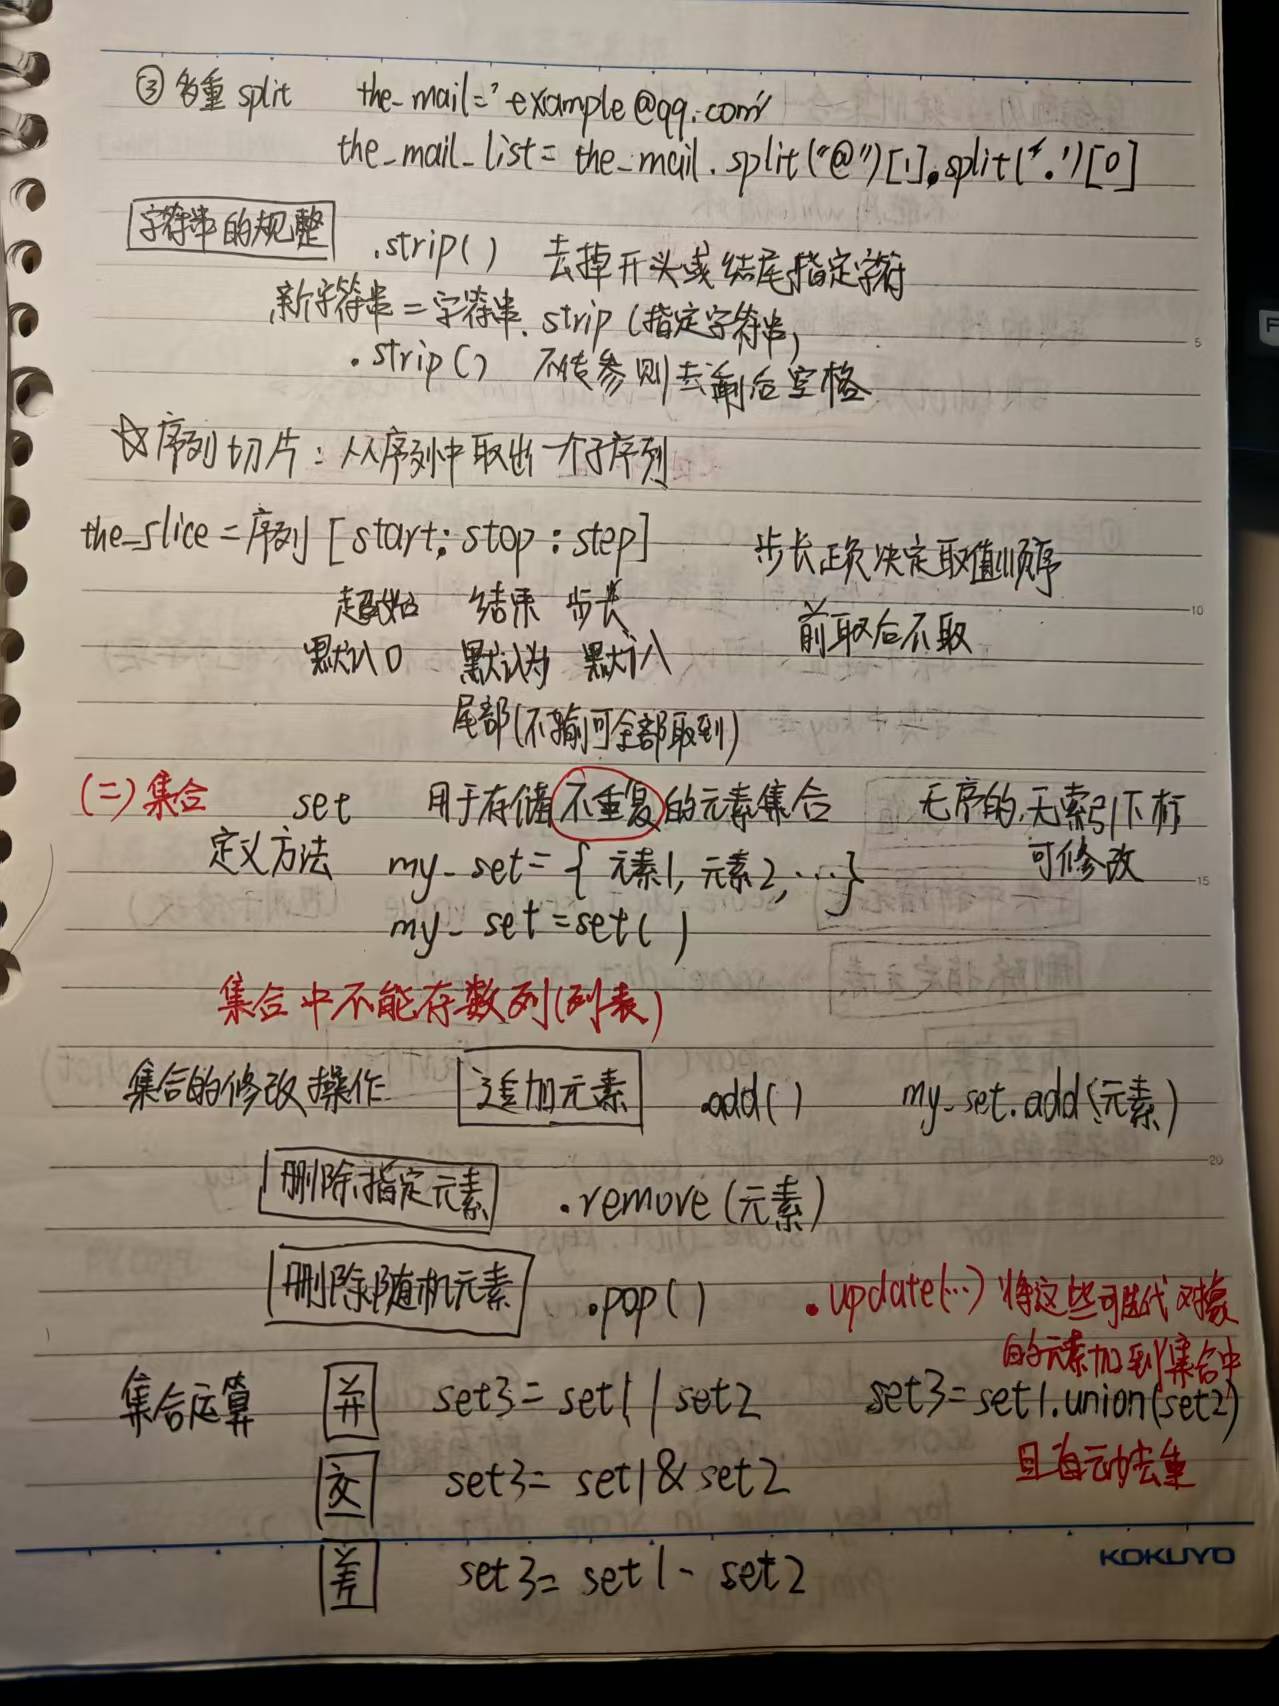 ③ 多重 split the_mail='example@qq.com'
the_mail_list = the_mail.split("@")[1].split('.')[0]
字符串的规整 .strip() 去掉开头或结尾指定字符
新字符串 = 字符串.strip(指定字符串)
.strip() 不传参则去前后空格
☆序列切片：从序列中取出一个子序列
the_slice = 序列 [start: stop : step] 步长正负决定取值顺序
起始 结束 步长 前取后不取
默认0 默认为 默认1
尾部(不输可全部取到)
(二)集合 set 用于存储不重复的元素集合 无序的,无索引下标
定义方法 my_set = { 元素1, 元素2, …} 可修改
my_set = set()
集合中不能存数列(列表)
集合的修改操作 追加元素 .add() my_set.add(元素)
删除指定元素 .remove(元素)
删除随机元素 .pop() .update(…) 将这些可迭代对象
的元素加到集合中
集合运算 并 set3 = set1 | set2 set3 = set1.union(set2)
且自动去重
交 set3 = set1 & set2
差 set3 = set1 - set2
KOKUYO
5
10
15
20